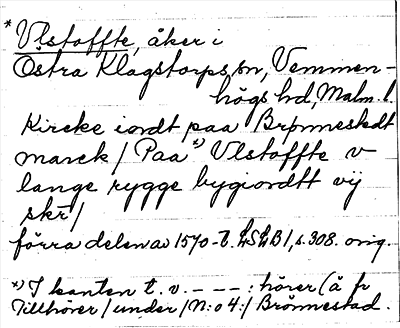 * Vlstoffte, åker i
Östra Klagstorps sn, Vemmen-
högs hd, Malm. l.
Kircke iordt paa Brönnestedt
marck / Paa *) Vlstoffte v
lange rygge bygiordtt vij
skr /
förra delen av 1570-t. LSLB1, s. 308. orig.
*) I kanten t. v. - - - : hörer (å pr
Tillhörer / under / N:o 4: / Brönnestad.